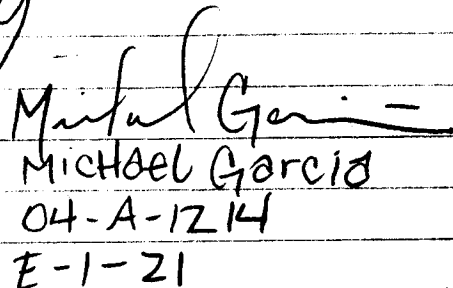 Michael Garcia
MICHael Garcia
04-A-1214
E-1-21